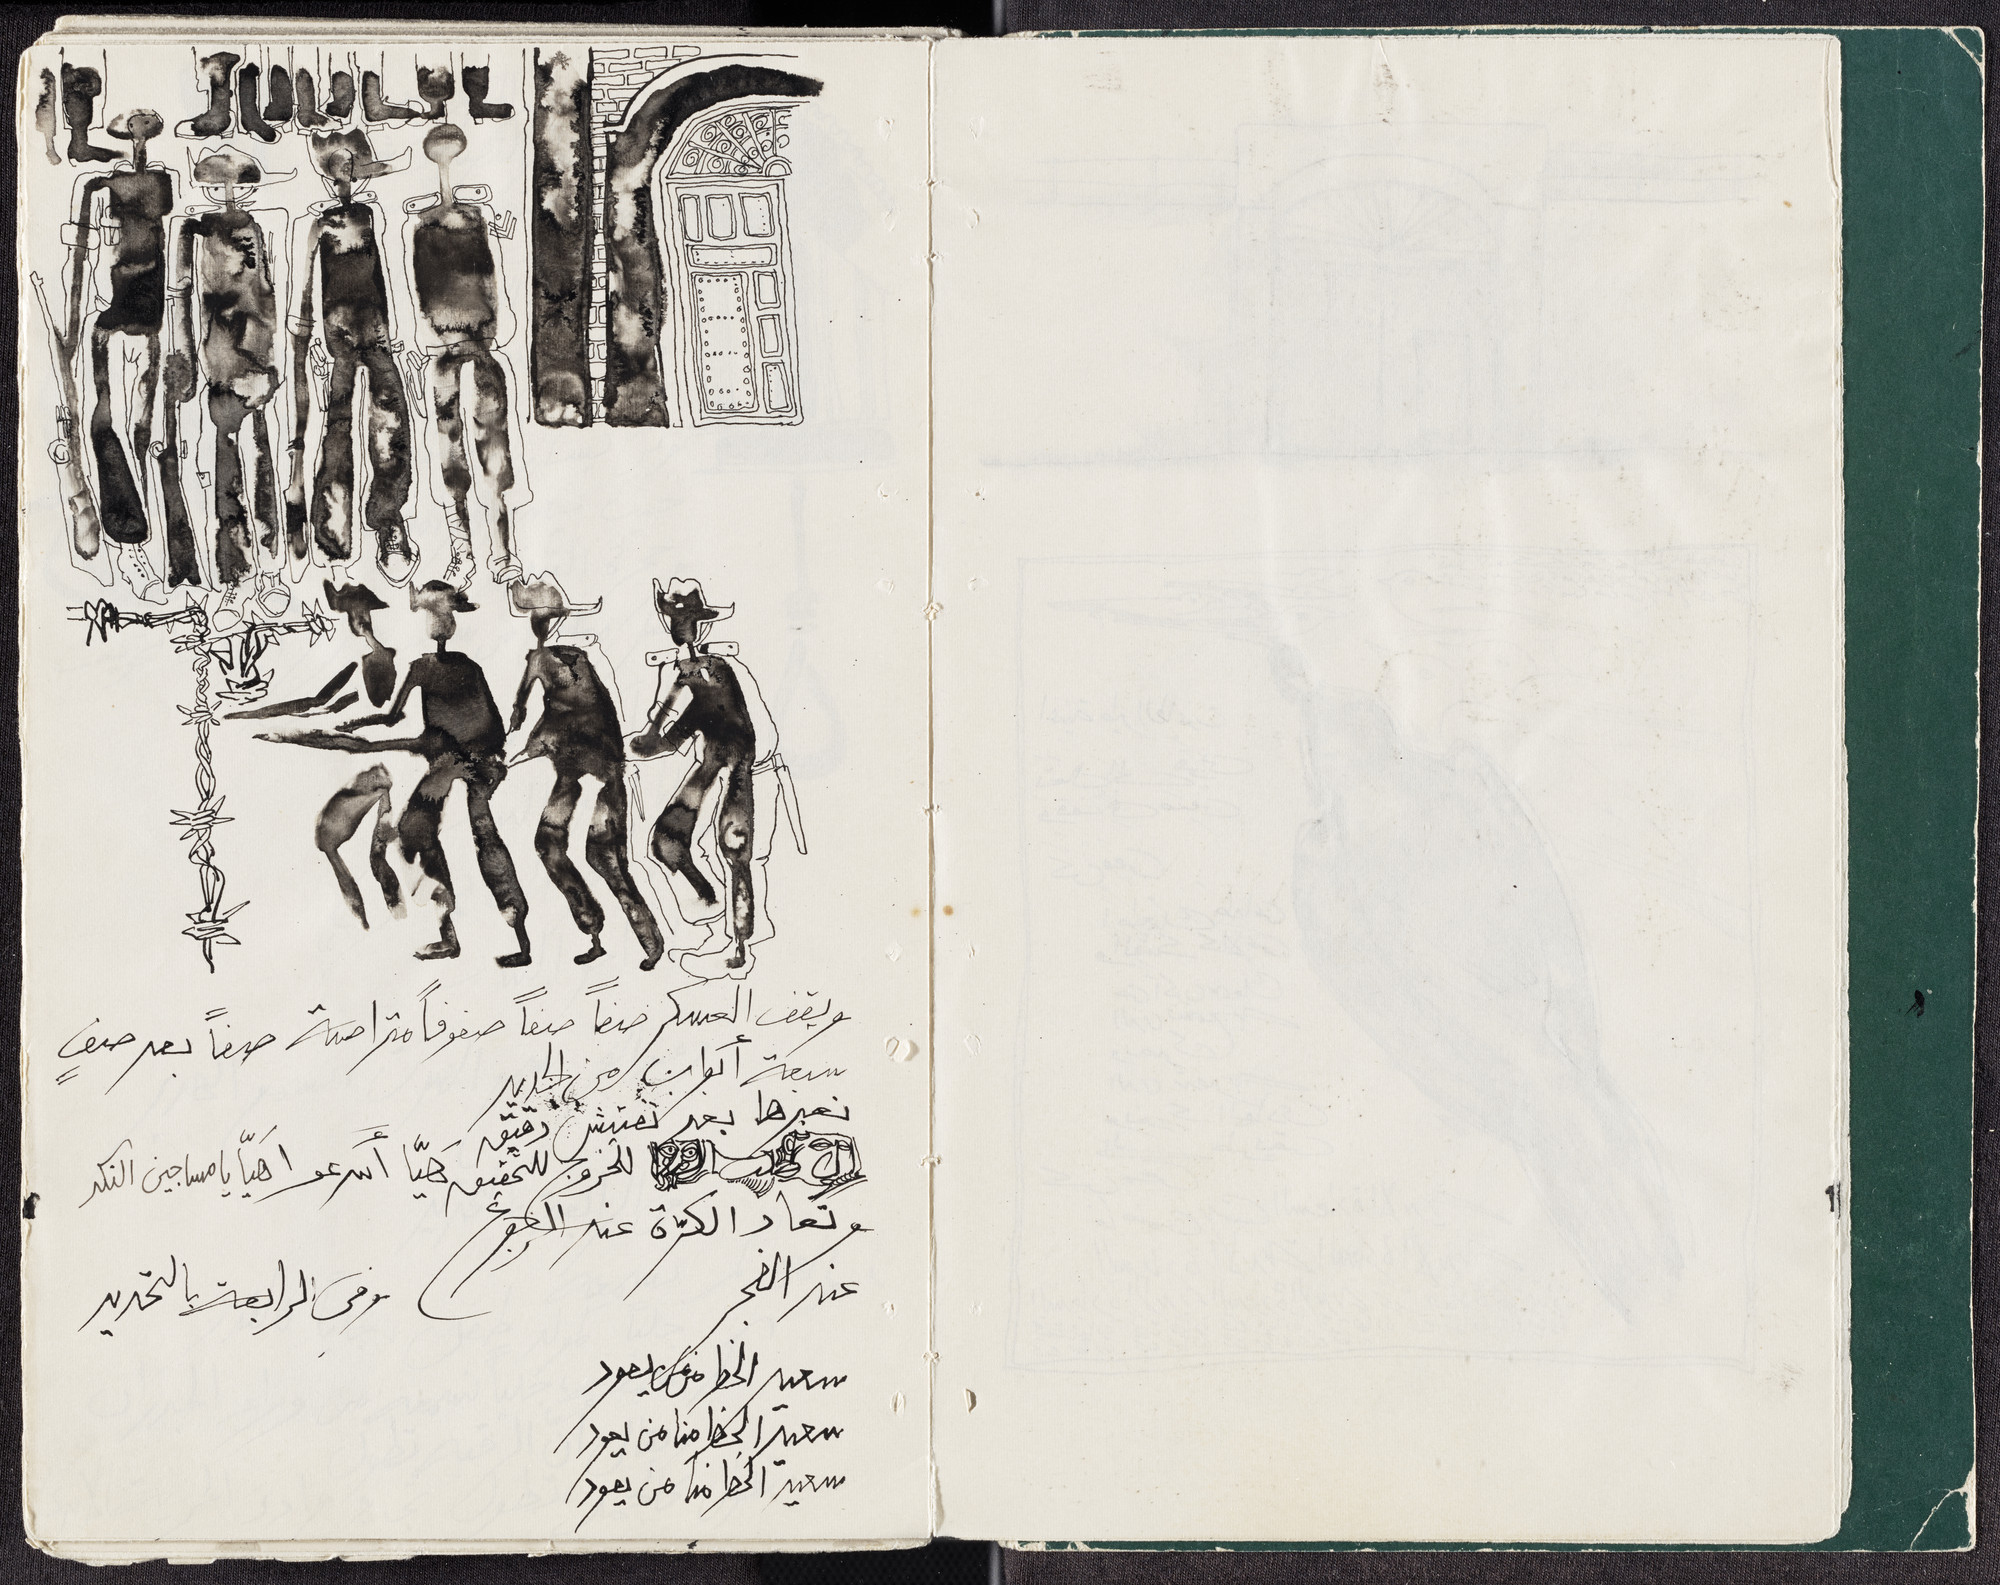 ويقف العسكر صفاً صفاً صفوفاً متراصة صفاً بعد صفٍ
سبعة أبواب من الحديد
نعبرها بعد تفتيش دقيق
للخروج للتحقيق هيّا أسرعوا هيّا يا مساجين النكد
وتعاد الكرّة عند الرجوع
عند الفجر
وفي الرابعة بالتحديد
سعيد الحظ من يعود
سعيد الحظ منا من يعود
سعيد الحظ منا من يعود